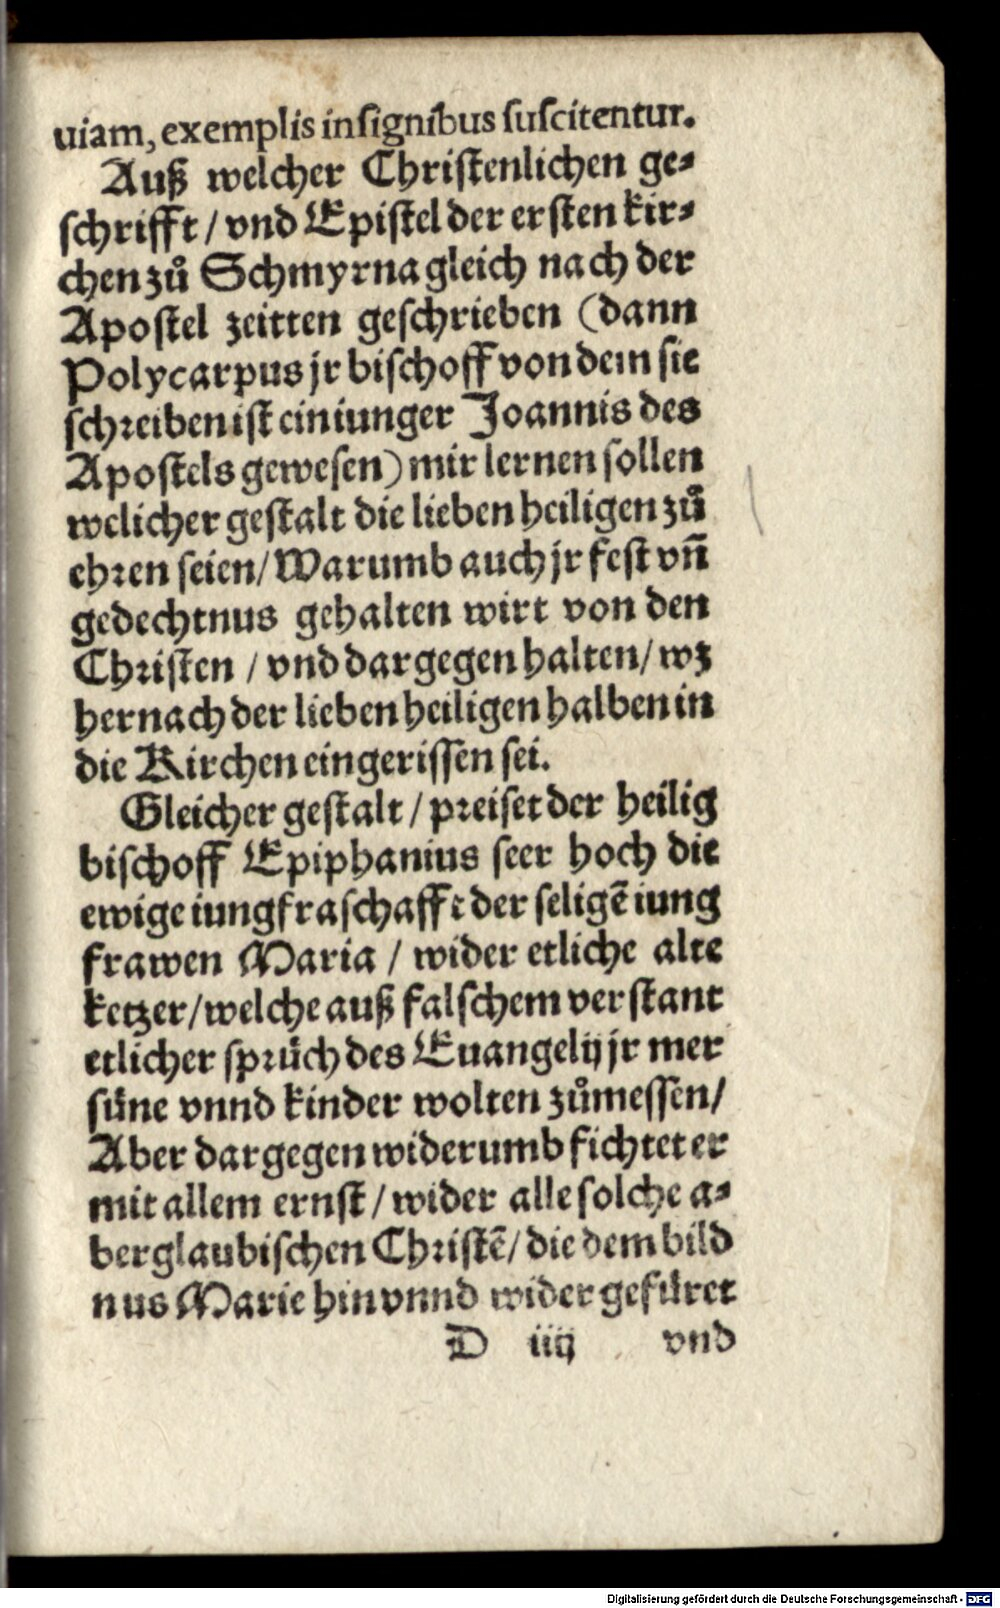 uiam, exemplis insignibus suscitentur.
Auß welcher Christenlichen ge-
schrifft / vnd Epistel der ersten kir-
chen zů Schmyrna gleich nach der
Apostel zeitten geschrieben (dann
Polycarpus jr bischoff von dem sie
schreiben ist ein iunger Joannis des
Apostels gewesen) mir lernen sollen
welicher gestalt die lieben heiligen zů
ehren seien / Warumb auch jr fest vñ
gedechtnus gehalten wirt von den
Christen / vnd dargegen halten / wz
hernach der lieben heiligen halben in
die Kirchen eingerissen sei.
Gleicher gestalt / preiset der heilig
bischoff Epiphanius seer hoch die
ewige iungfraschafft der seligẽ iung
frawen Maria / wider etliche alte
ketzer / welche auß falschem verstant
etlicher sprüch des Euangelij jr mer
süne vnnd kinder wolten zůmessen /
Aber dargegen widerumb fichtet er
mit allem ernst / wider alle solche a-
berglaubischen Christẽ / die dem bild
nus Marie hin vnnd wider gefüret
D iiij vnd
Digitalisierung gefördert durch die Deutsche Forschungsgemeinschaft - DFG